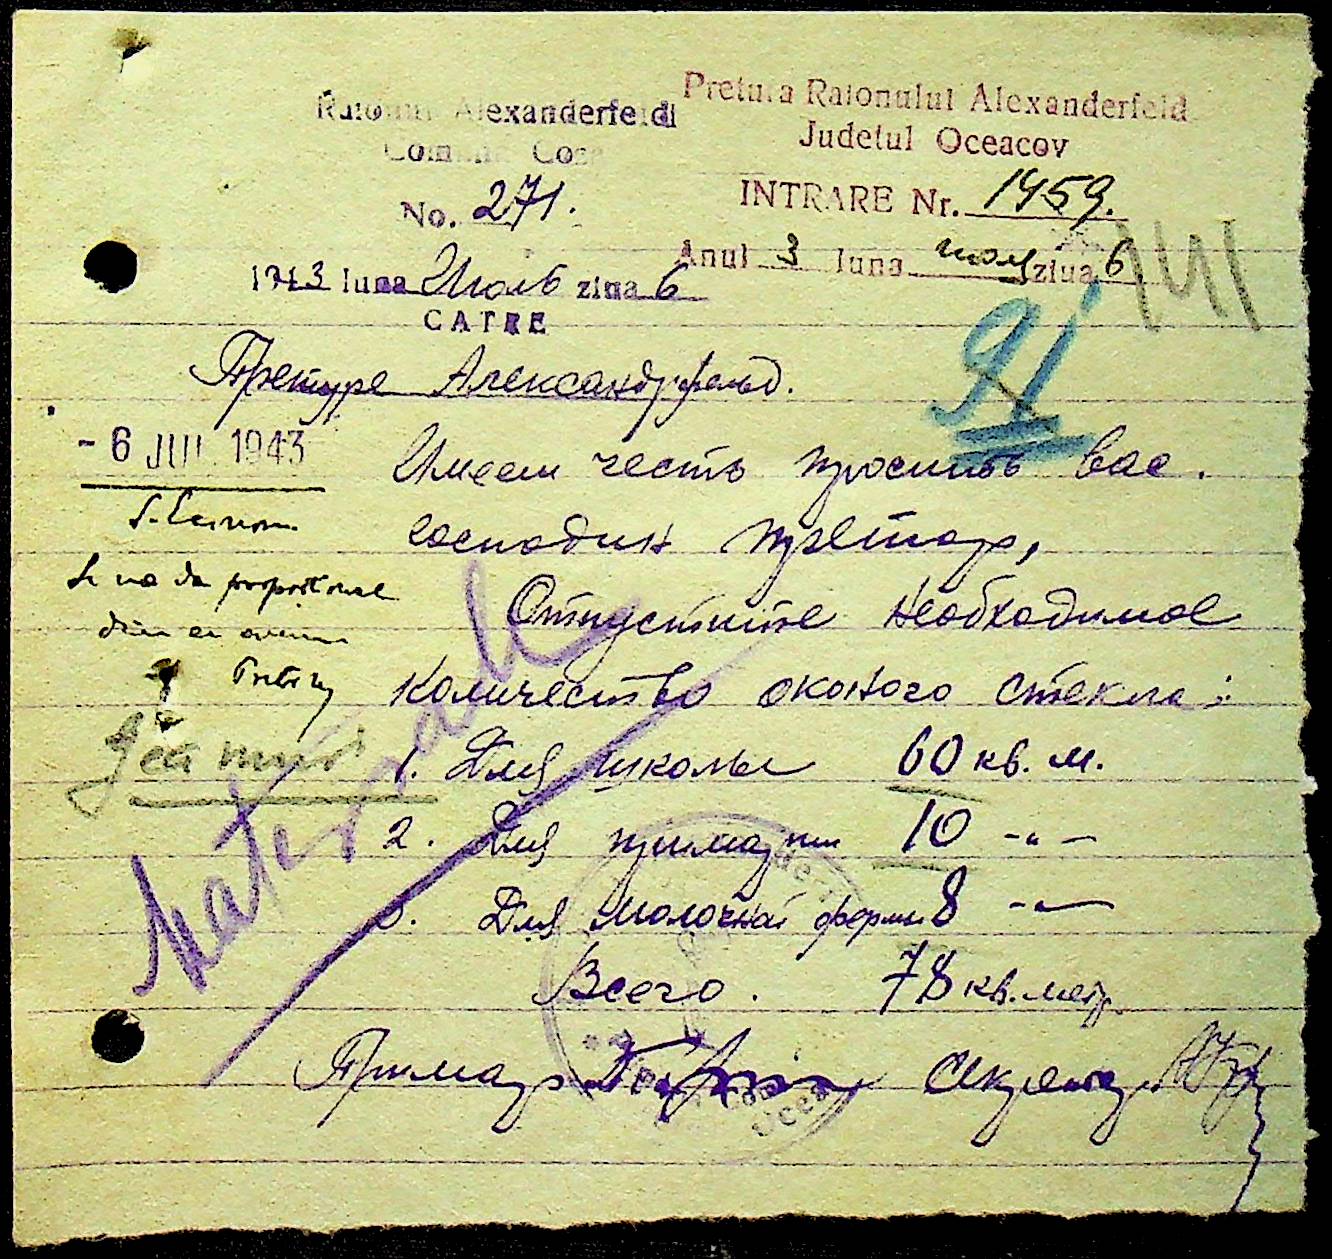 Raionul Alexanderfeld
Comuna
No. 271.
1943 luna Июль ziua 6
CATRE
Pretura Raionului Alexanderfeld
Judetul Oceacov
INTRARE Nr. 1459.
Anul 3 luna июля ziua 6
141
91
Претуре Александрфельд.
- 6 JUL 1943
Имеем честь просить вас.
господин претор,
Отпустите необходимое
количество оконого стекла:
1. Для школы 60 кв. м.
2. Для примарии 10 -"-
3. Для молочной фермы 8 -"-
Всего. 78 кв. метр.
Примар Секретар
Se va da proportional
Materiale